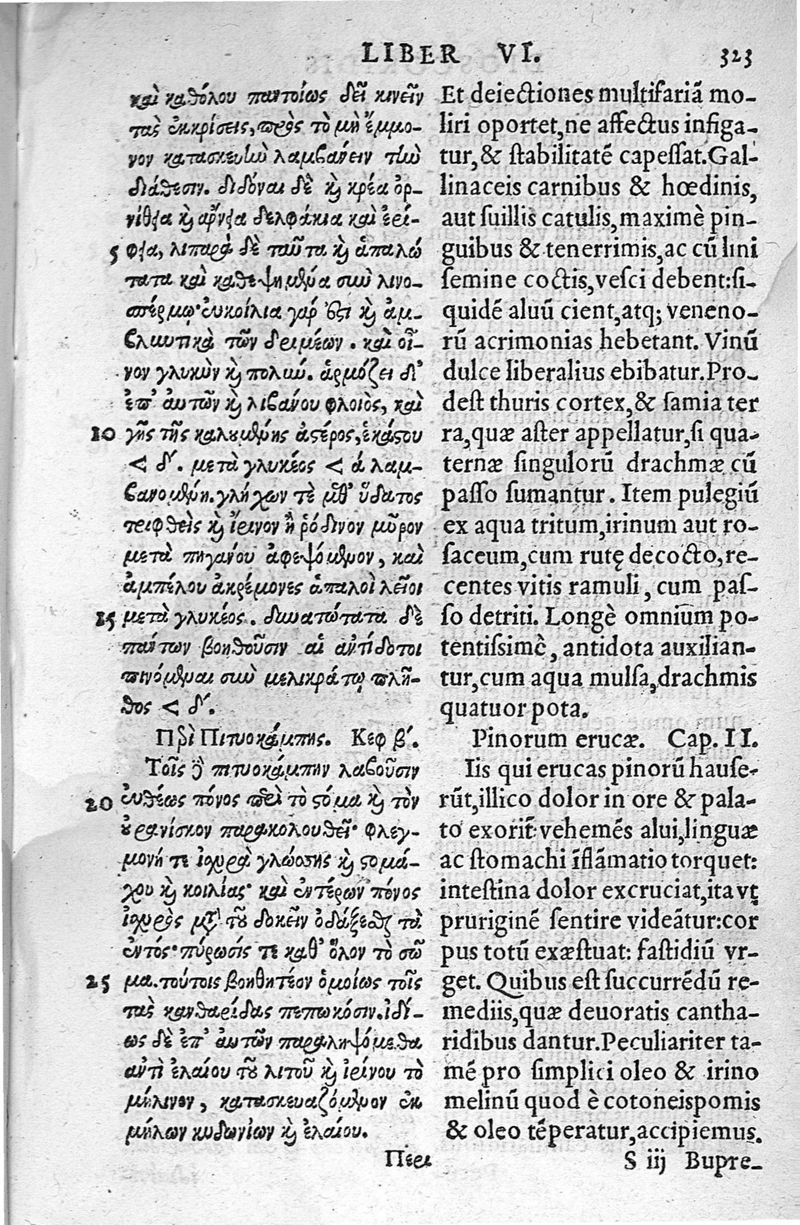 LIBER VI. 323
καὶ καθόλου παντοίως δεῖ κινεῖν
τὰς ἐκκρίσεις, πρὸς τὸ μὴ ἔμμο-
νον κατασκευὴν λαμβάνειν τὴν
διάθεσιν. διδόναι δὲ κ̀ κρέα ὀρ-
νίθεια κ̀ ἄρνεια δελφάκια καὶ ἐρί-
5 φεια, λιπαρὰ δὲ ταῦτα κ̀ ἁπαλώ
τατα καὶ καθεψημένα σὺν λινο-
σπέρμῳ· εὐκοίλια γάρ ἐστι κ̀ ἀμ-
βλυντικὰ τῶν δριμέων. καὶ οἶ-
νον γλυκὺν κ̀ πολύν. ἁρμόζει δ'
ἐπ' αὐτῶν κ̀ λιβάνου φλοιὸς, καὶ
10 γῆς τῆς καλουμένης ἀστέρος, ἑκάστου
< δ'. μετὰ γλυκέος < ἀ λαμ-
βανομένη. γλήχων τὲ μεθ' ὕδατος
τριφθεὶς κ̀ ἴρινον ἢ ῥόδινον μῦρον
μετὰ πηγάνου ἀφεψόμενον, καὶ
ἀμπέλου ἀκρέμονες ἁπαλοὶ λεῖοι
15 μετὰ γλυκέος. δυνατώτατα δὲ
πάντων βοηθοῦσιν αἱ ἀντίδοτοι
πινόμεναι σὺν μελικράτῳ πλῆ-
θος < δ'.
Περὶ Πιτυοκάμπης. Κεφ β'.
Τοῖς δὲ πιτυοκάμπην λαβοῦσιν
20 εὐθέως πόνος περὶ τὸ στόμα κ̀ τὸν
οὐρανίσκον παρακολουθεῖ· φλεγ-
μονή τε ἰσχυρὰ γλώσσης κ̀ στομά-
χου κ̀ κοιλίας· καὶ ἐντέρων πόνος
ἰσχυρὸς μετὰ τοῦ δοκεῖν ὀδάξεσθαι τὰ
ἐντός· πύρωσίς τε καθ' ὅλον τὸ σῶ
25 μα. τούτοις βοηθητέον ὁμοίως τοῖς
τὰς κανθαρίδας πεπωκόσιν. ἰδί-
ως δὲ ἐπ' αὐτῶν παραληψόμεθα
ἀντὶ ἐλαίου τοῦ λιτοῦ κ̀ ἰρίνου τὸ
μήλινον, κατασκευαζόμενον ἐκ
μήλων κυδωνίων κ̀ ἐλαίου.
Περι
Et deiectiones multifariã mo-
liri oportet,ne affectus infiga-
tur,& stabilitatẽ capessat.Gal-
linaceis carnibus & hœdinis,
aut suillis catulis,maximè pin-
guibus & tenerrimis, ac cũ lini
semine coctis,vesci debent:si-
quidẽ aluũ cient,atq; veneno-
rũ acrimonias hebetant. Vinũ
dulce liberalius ebibatur.Pro-
dest thuris cortex,& samia ter
ra,quæ aster appellatur,si qua-
ternæ singulorũ drachmæ cũ
passo sumantur. Item pulegiũ
ex aqua tritum,irinum aut ro-
saceum,cum rutę decocto,re-
centes vitis ramuli, cum pas-
so detriti. Longè omnium po-
tentissimè, antidota auxilian-
tur,cum aqua mulsa,drachmis
quatuor pota.
Pinorum erucæ. Cap. II.
Iis qui erucas pinorũ hause-
rũt,illico dolor in ore & pala-
to exorit̃ vehemẽs alui,linguæ
ac stomachi ĩflãmatio torquet:
intestina dolor excruciat,ita vt
pruriginẽ sentire videãtur:cor
pus totũ exæstuat: fastidiũ vr-
get. Quibus est succurrẽdũ re-
mediis,quæ deuoratis cantha-
ridibus dantur.Peculiariter ta-
mẽ pro simplici oleo & irino
melinũ quod è cotoneis pomis
& oleo tẽperatur,accipiemus.
S iij Bupre-